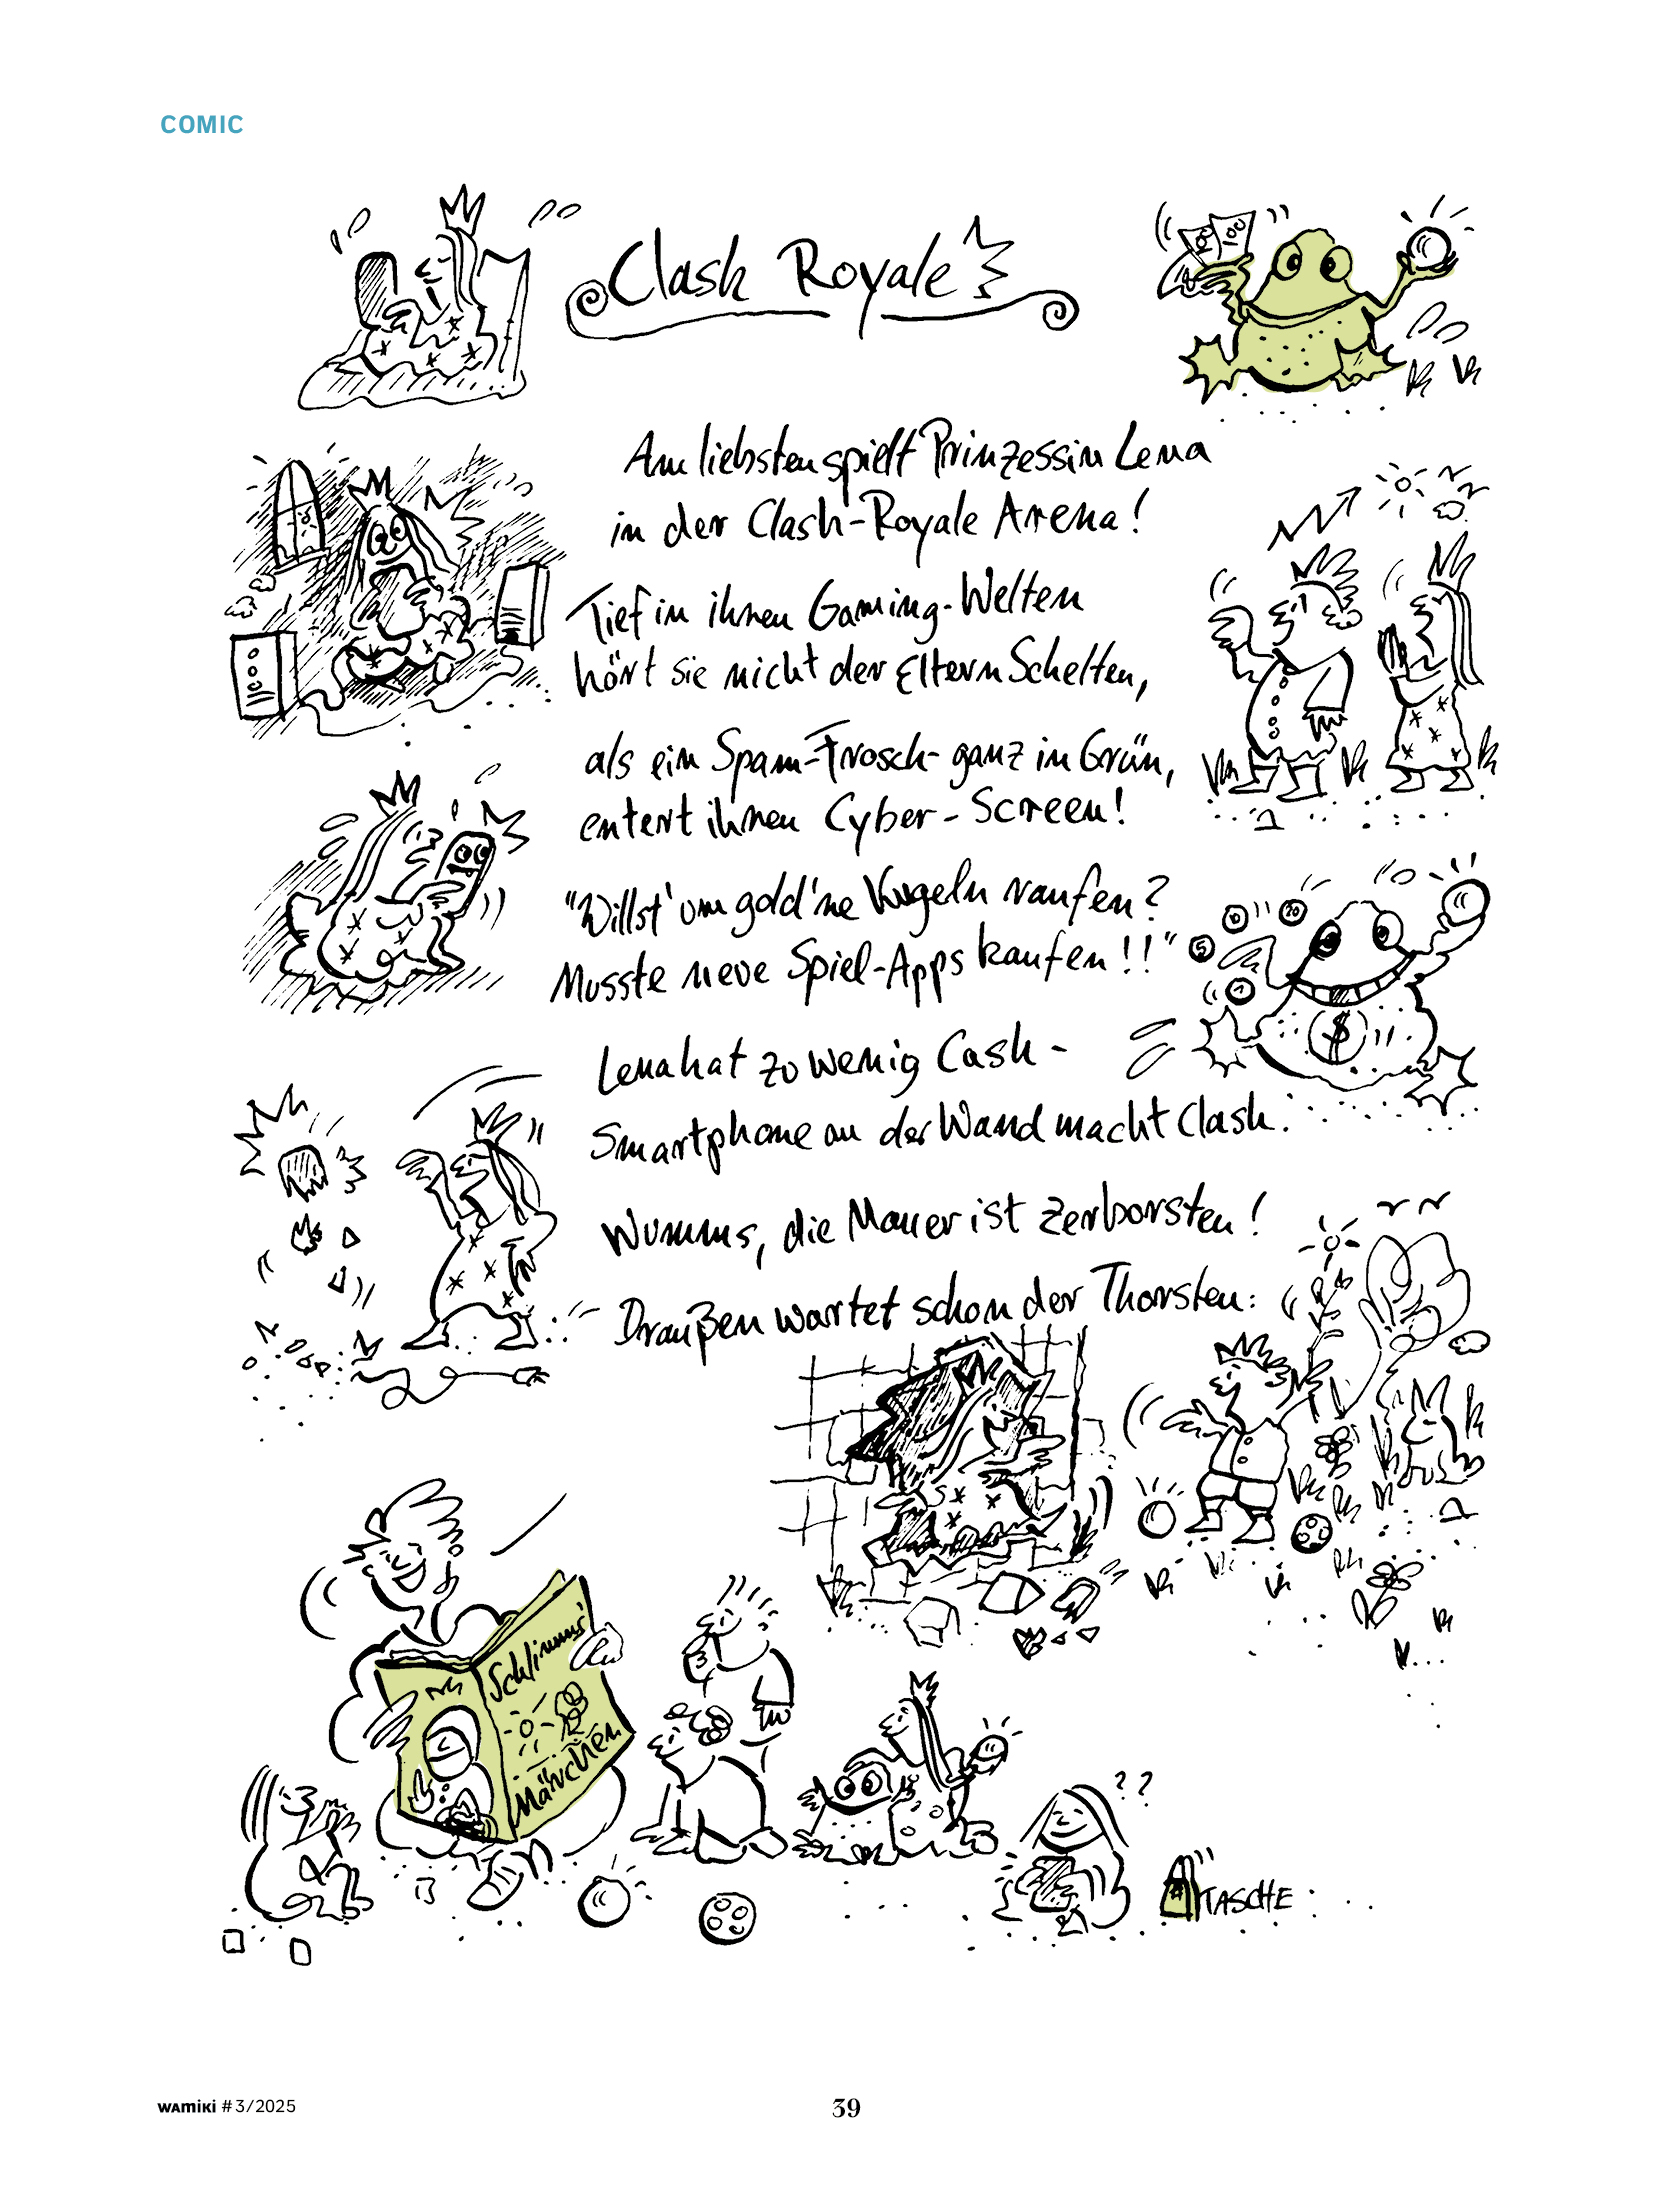 COMIC
Clash Royale
100
Am liebsten spielt Prinzessin Lena
in der Clash-Royale Arena!
Tief in ihren Gaming-Welten
hört sie nicht der Eltern Schelten,
als ein Spam-Frosch- ganz in Grün,
entert ihren Cyber-Screen!
"Willst' um gold'ne Kugeln raufen?
Musste neue Spiel-Apps kaufen!!"
10
20
5
1
$
Lena hat zu wenig Cash -
Smartphone an der Wand macht Clash.
Wumms, die Mauer ist zerborsten!
Draußen wartet schon der Thorsten:
Schlimms'
Märchen
??
TASCHE
wamiki #3/2025
39